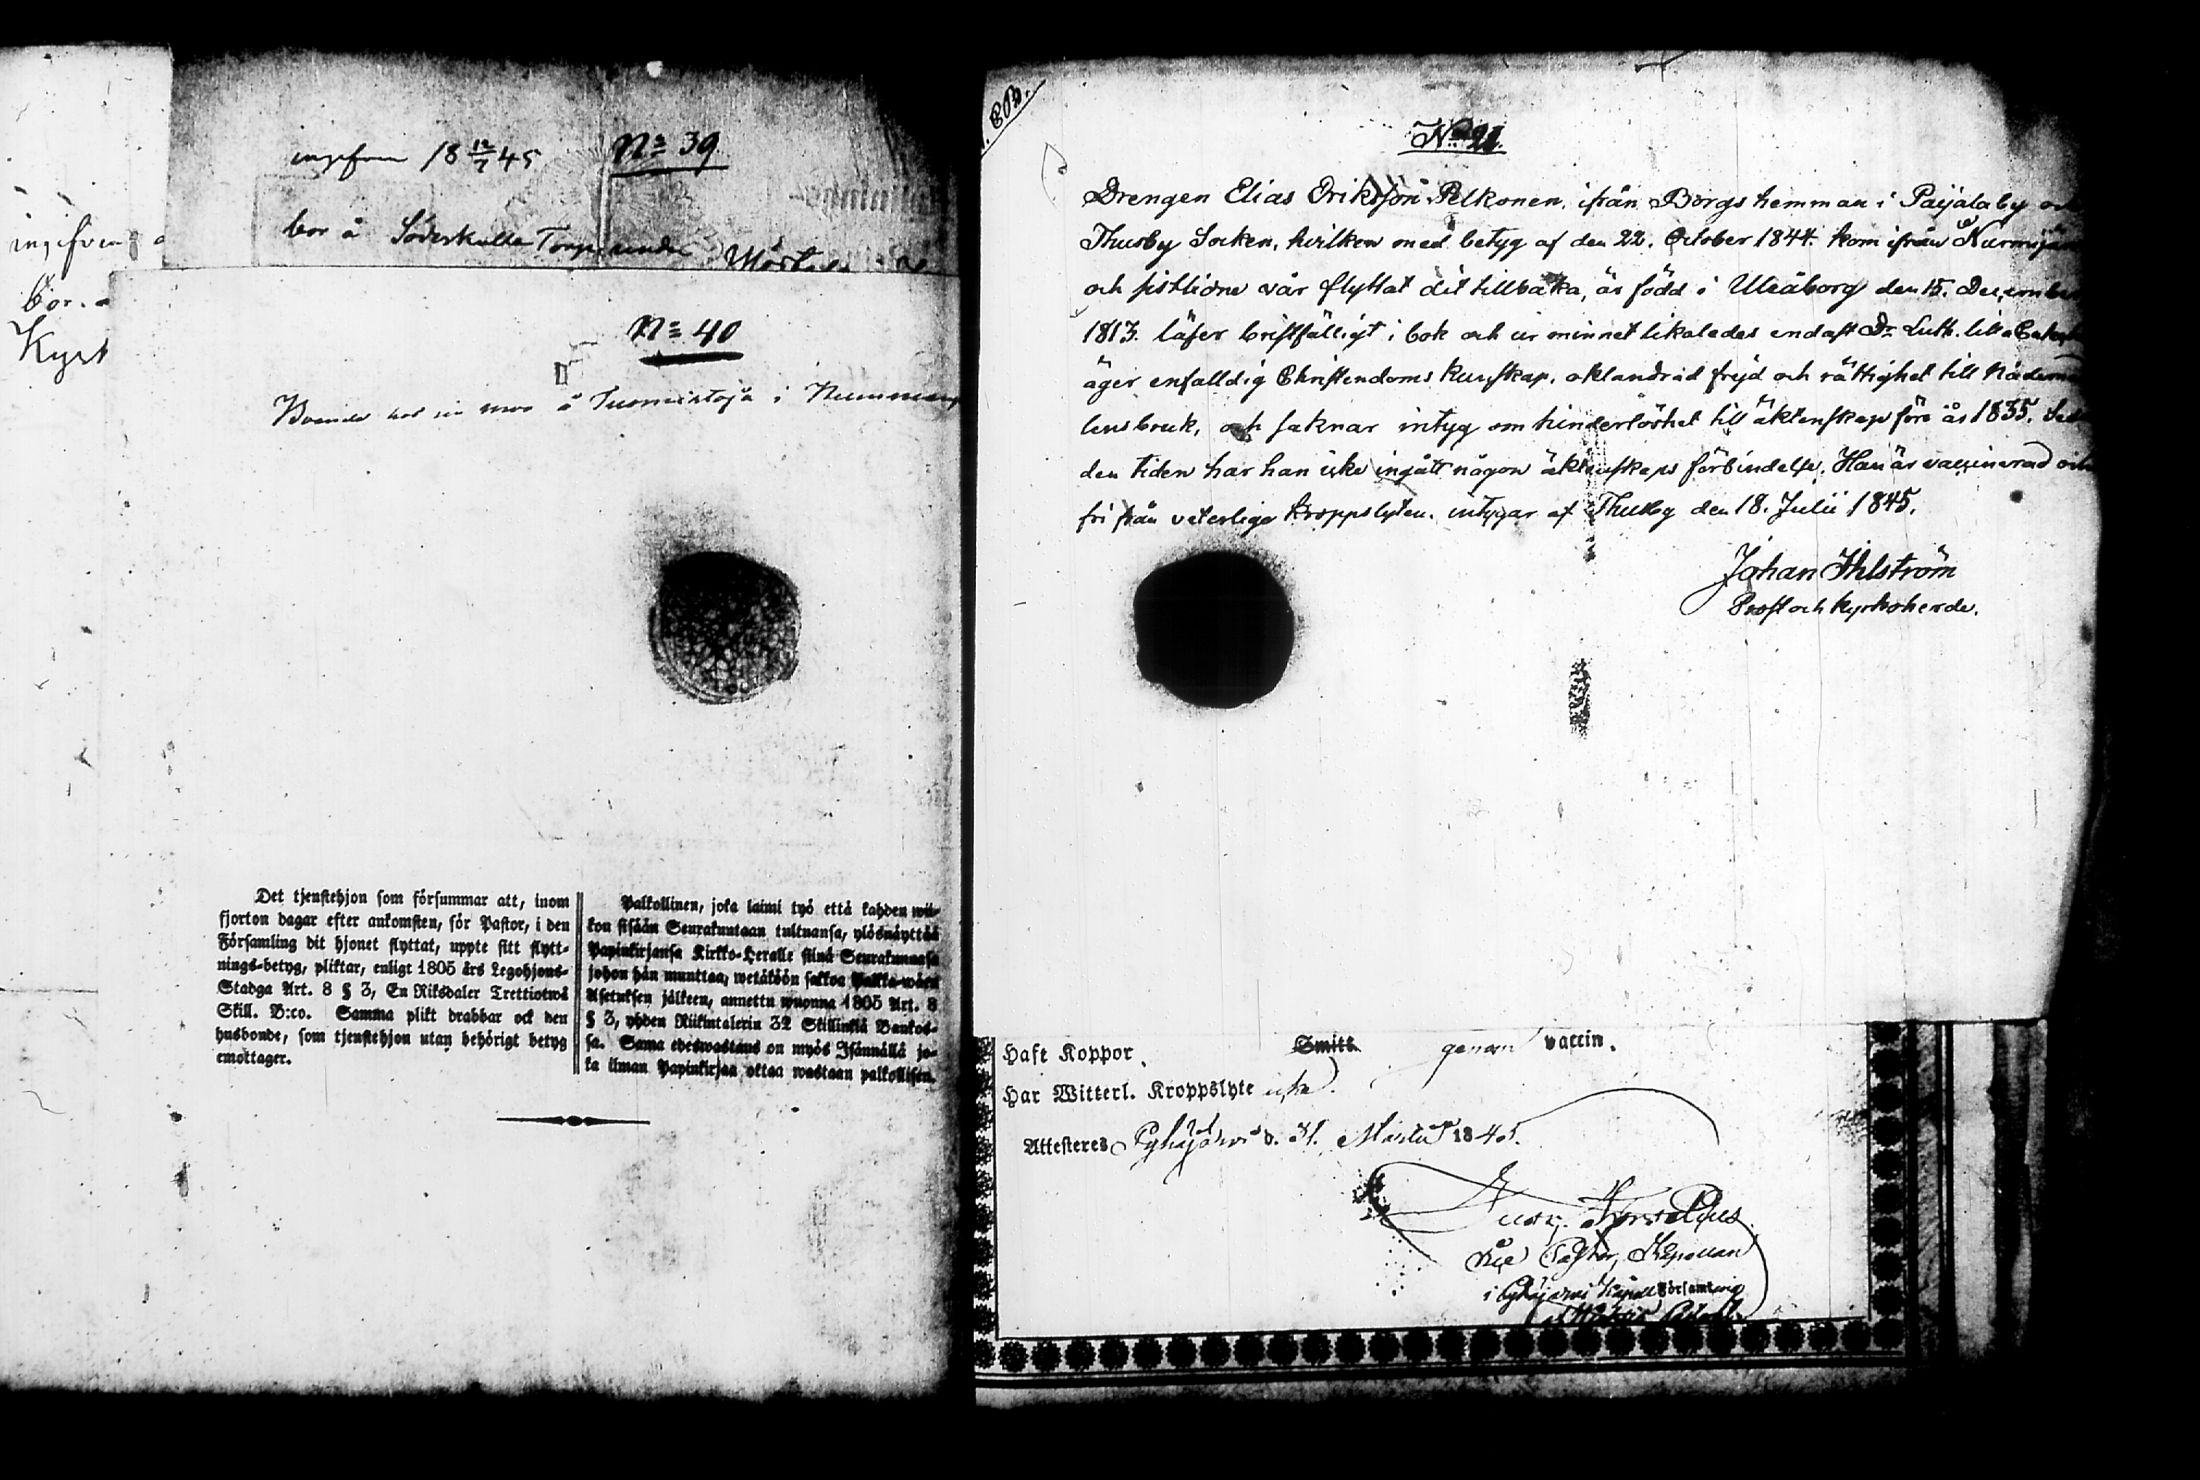 ingifven
bor å
Kyrk
18 12/7 45
No 39
bor å Söderkulla Torp under Mårtens
No 40
Boende hos sin mor å i
Det tjenstehjon som försummar att, inom
fjorton dagar efter ankomsten, för Pastor, i den
Församling dit hjonet flyttat, uppte sitt flytt-
nings-betyg, pliktar, enligt 1805 års Legohjons-
Stadga Art. 8 § 3, En Riksdaler Trettiotwå
Skill. B:co. Samma plikt drabbar ock den
husbonde, som tjenstehjon utan behörigt betyg
emottager.
Palkollinen, joka laimi työ että kahden wii-
kon sisään Seurakuntaan tultuansa, ylösnäyttää
Papinkirjansa Kirkko-Heralle siinä Seurakunnasa
johon hän munttaa, wetäköön sakkoa Palkka-wäen
Asetuksen jälkeen, annettu wuonna 1805 Art. 8
§ 3, yhden Riikintalerin 32 Skillinkiä Bankos-
sa. Sama edeswastaus on myös Isännällä jo-
ka ilman Papinkirjaa ottaa wastaan palkollisen.
803.
No 21.
Drengen Elias Eriksson Pelkonen, ifrån Borgs hemman i Paijala by och
Thusby Socken, hvilken med betyg af den 22. October 1844. kom ifrån Nurmijärvi
och sistlidne vår flyttat dit tillbaka, är född i Uleåborg den 15. December
1813. läser bristfälligt i bok och ur minnet likaledes endast Dr. Luth. lilla Cateches
äger enfalldig Christendoms kunskap, oklandrad frejd och rättighet till Nådemed
lens bruk, och saknar intyg om hinderlöshet till äktenskap före år 1835. Sedan
den tiden har han icke ingått någon äktenskaps förbindelse. Han är vaccinerad och
fri från veterliga kroppslyten. intygar af Thusby den 18. Julii 1845.
Johan Ahlström
Prost och kyrkoherde.
Haft Koppor. Smitt. genom vaccin.
Har Witterl. Kroppslyte icke.
Attesteres Pyhäjärvi d. 31. Martii 1845.
Vice Pastor, Kapellan
i Pyhäjärvi Kapell Församling